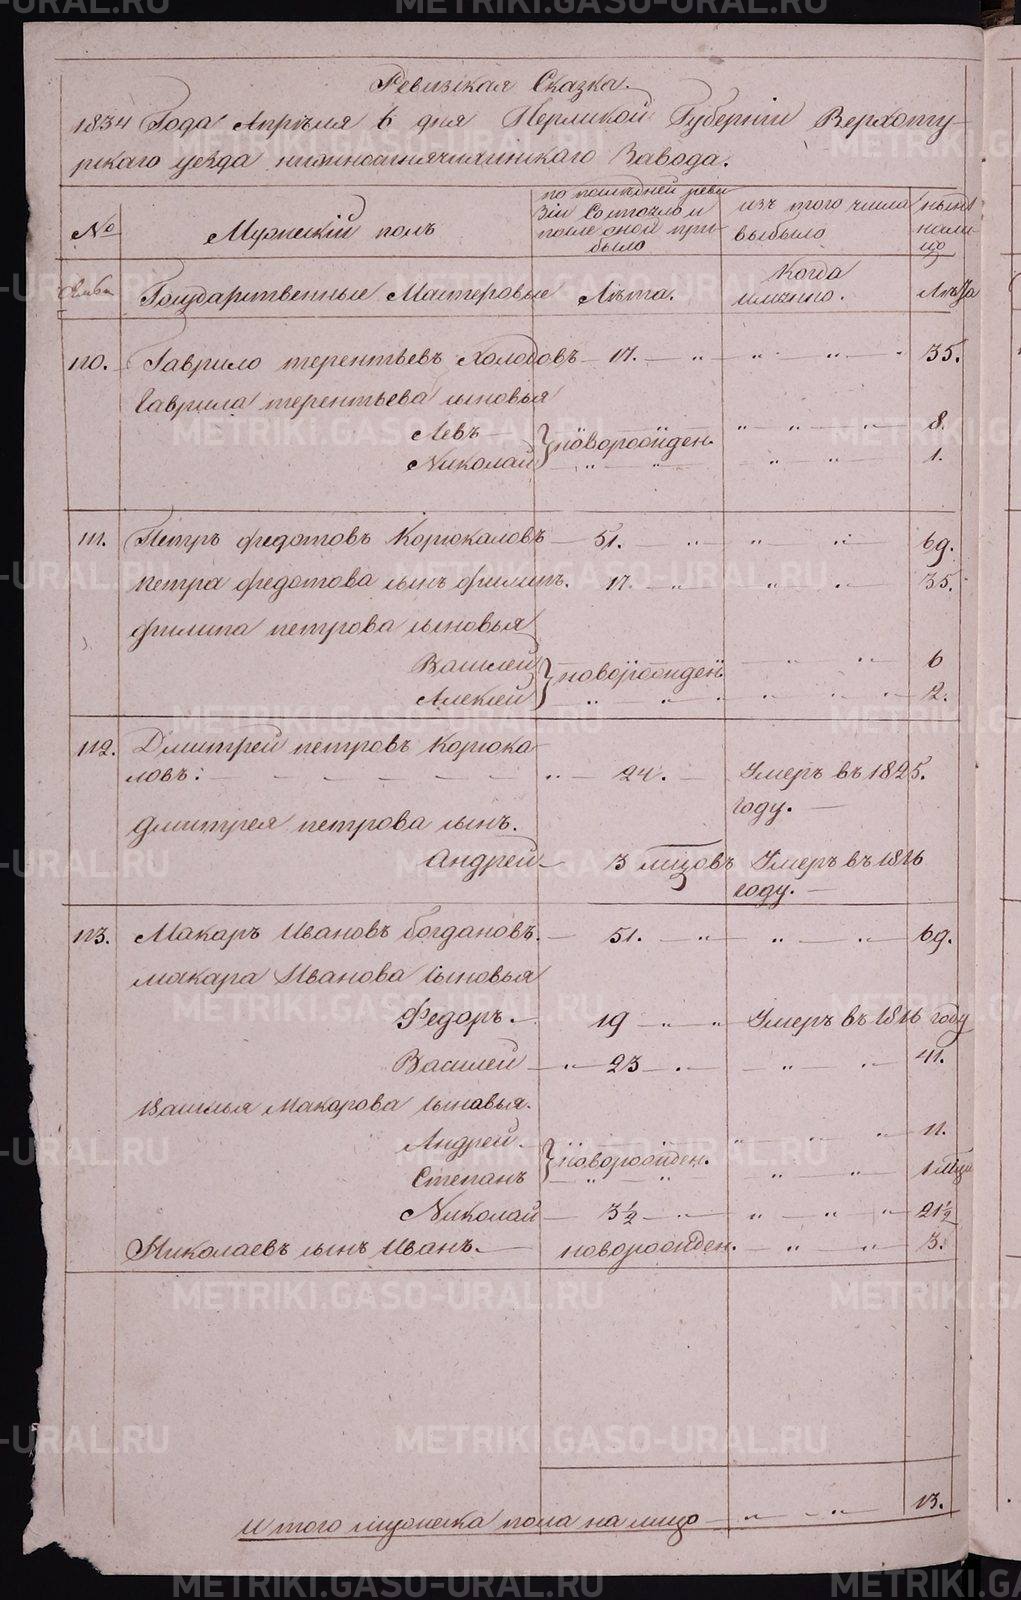 Ревизская Сказка.
1834 Года Апрѣля 6 дня Пермской Губерніи Верхоту-
рскаго уезда нижносинячихинскаго Завода.
№ Мужескій полъ по последней реви-
зіи Состояло и
после оной при-
было изъ того числа
выбыло ныне
нали-
цо
Государственные Мастеровые Лѣта. Когда
имянно. Лѣта
110. Гаврило терентьевъ Холодовъ 17. 35.
Гаврила терентьева сыновья
Левъ новорожден. 8.
Николай 1.
111. Петръ федотовъ Корюкаловъ 51. 69.
петра федотова сынъ филипъ. 17. 35.
филипа петрова сыновья
Василей новорожден 6
Алексей 2.
112. Дмитрей петровъ Корюка-
ловъ: 24. Умеръ въ 1825.
году.
дмитрея петрова сынъ.
Андрей 3 мцовъ Умеръ въ 1816
году.
113. Макаръ Ивановъ богдановъ. 51. 69.
макара Иванова сыновья
Федоръ. 19 Умеръ въ 1816 году
Василей 23 41.
Василья Макарова сыновья.
Андрей. новорожден. 11.
Степанъ 1 мцъ
Николай 3½ 21½
Николаевъ сынъ Иванъ. новорожден. 3.
Итого мужеска пола на лицо 13.
METRIKI.GASO-URAL.RU